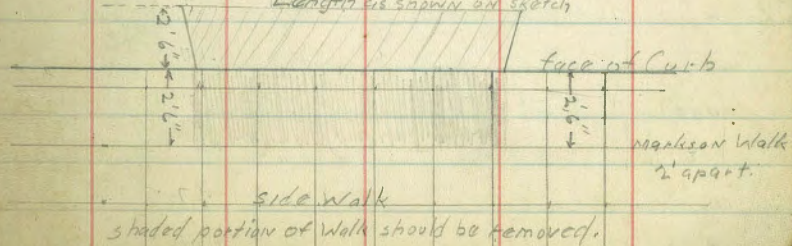 Length as shown on sketch
2'6"
face of Curb
2'6"
2'6"
Marks on Walk
2' apart.
side walk
shaded portion of Walk should be removed.